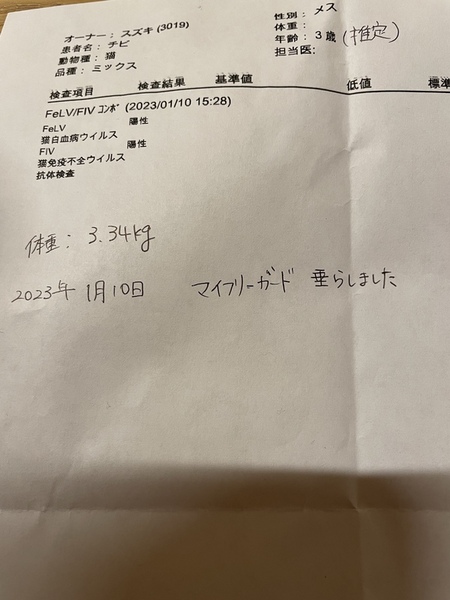 オーナー: スズキ (3019)
患者名: チビ
動物種: 猫
品種: ミックス
性別: メス
体重:
年齢: 3 歳 (推定)
担当医:
検査項目 検査結果 基準値 低値 標準
FeLV/FIV コンボ (2023/01/10 15:28)
FeLV 陽性
猫白血病ウイルス
FIV 陽性
猫免疫不全ウイルス
抗体検査
体重: 3.34kg
2023年 1月10日 マイフリーガード 垂らしました